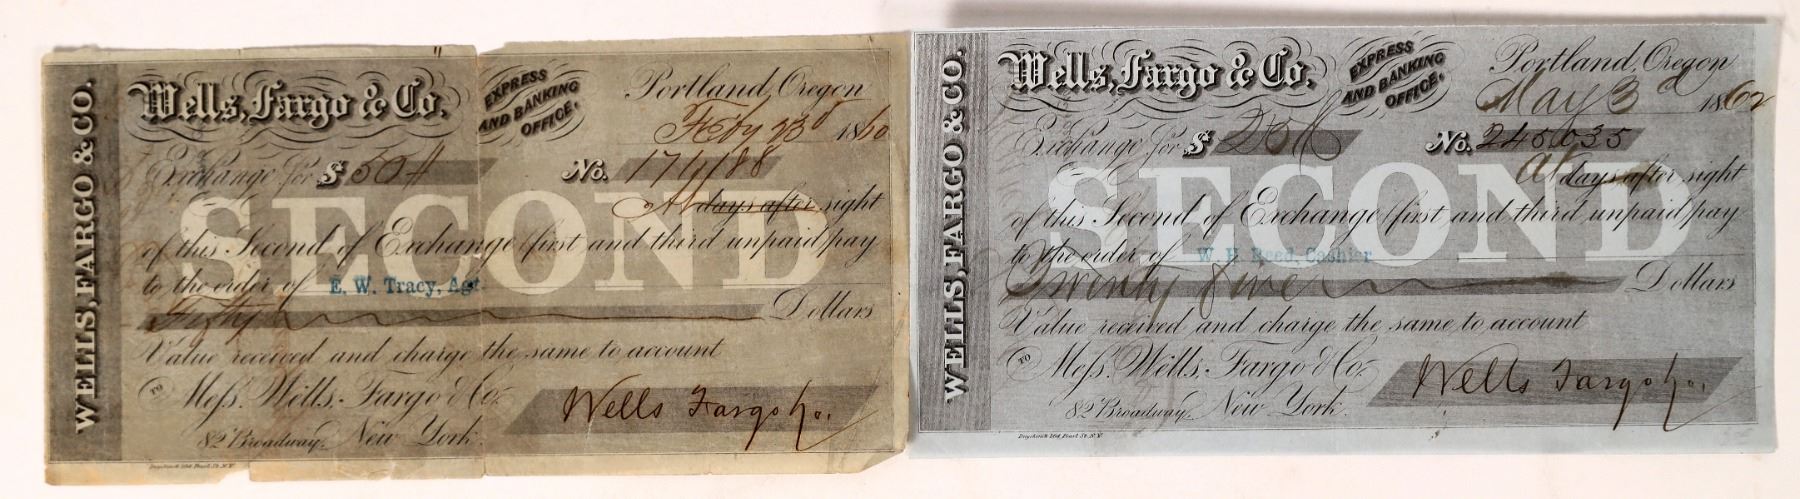 WELLS, FARGO & CO.
Wells, Fargo & Co.
EXPRESS
AND BANKING
OFFICE.
Portland, Oregon
Feby 23d 1860
Exchange for $ 50 No.
At days after sight
of this Second of Exchange (first and third unpaid) pay
to the order of E. W. Tracy, Agt
SECOND
Fifty Dollars
Value received and charge the same to account
TO Mess. Wells, Fargo & Co.
82 Broadway, New York.
Wells Fargo & Co.
WELLS, FARGO & CO.
Wells, Fargo & Co.
EXPRESS
AND BANKING
OFFICE.
Portland, Oregon
May 3d 1862
Exchange for $ 25 No. 245.035
At days after sight
of this Second of Exchange (first and third unpaid) pay
to the order of W. H. Reed, Cashier
SECOND
Twenty five Dollars
Value received and charge the same to account
TO Mess. Wells, Fargo & Co.
82 Broadway, New York.
Wells Fargo & Co.